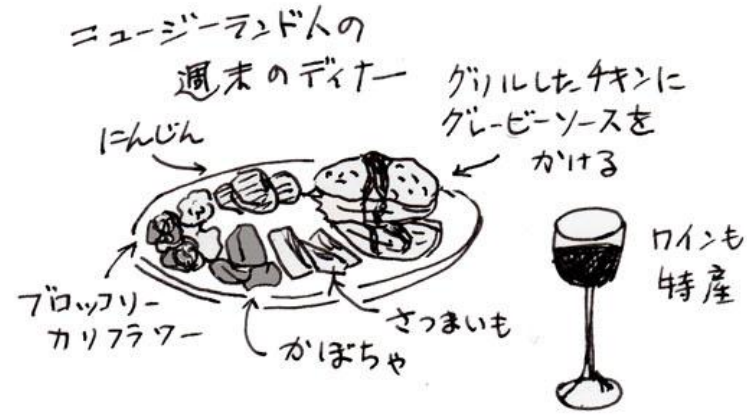 ニュージーランド人の
週末のディナー
グリルしたチキンに
グレービーソースを
かける
にんじん
ワインも
特産
ブロッコリー
カリフラワー
かぼちゃ
さつまいも